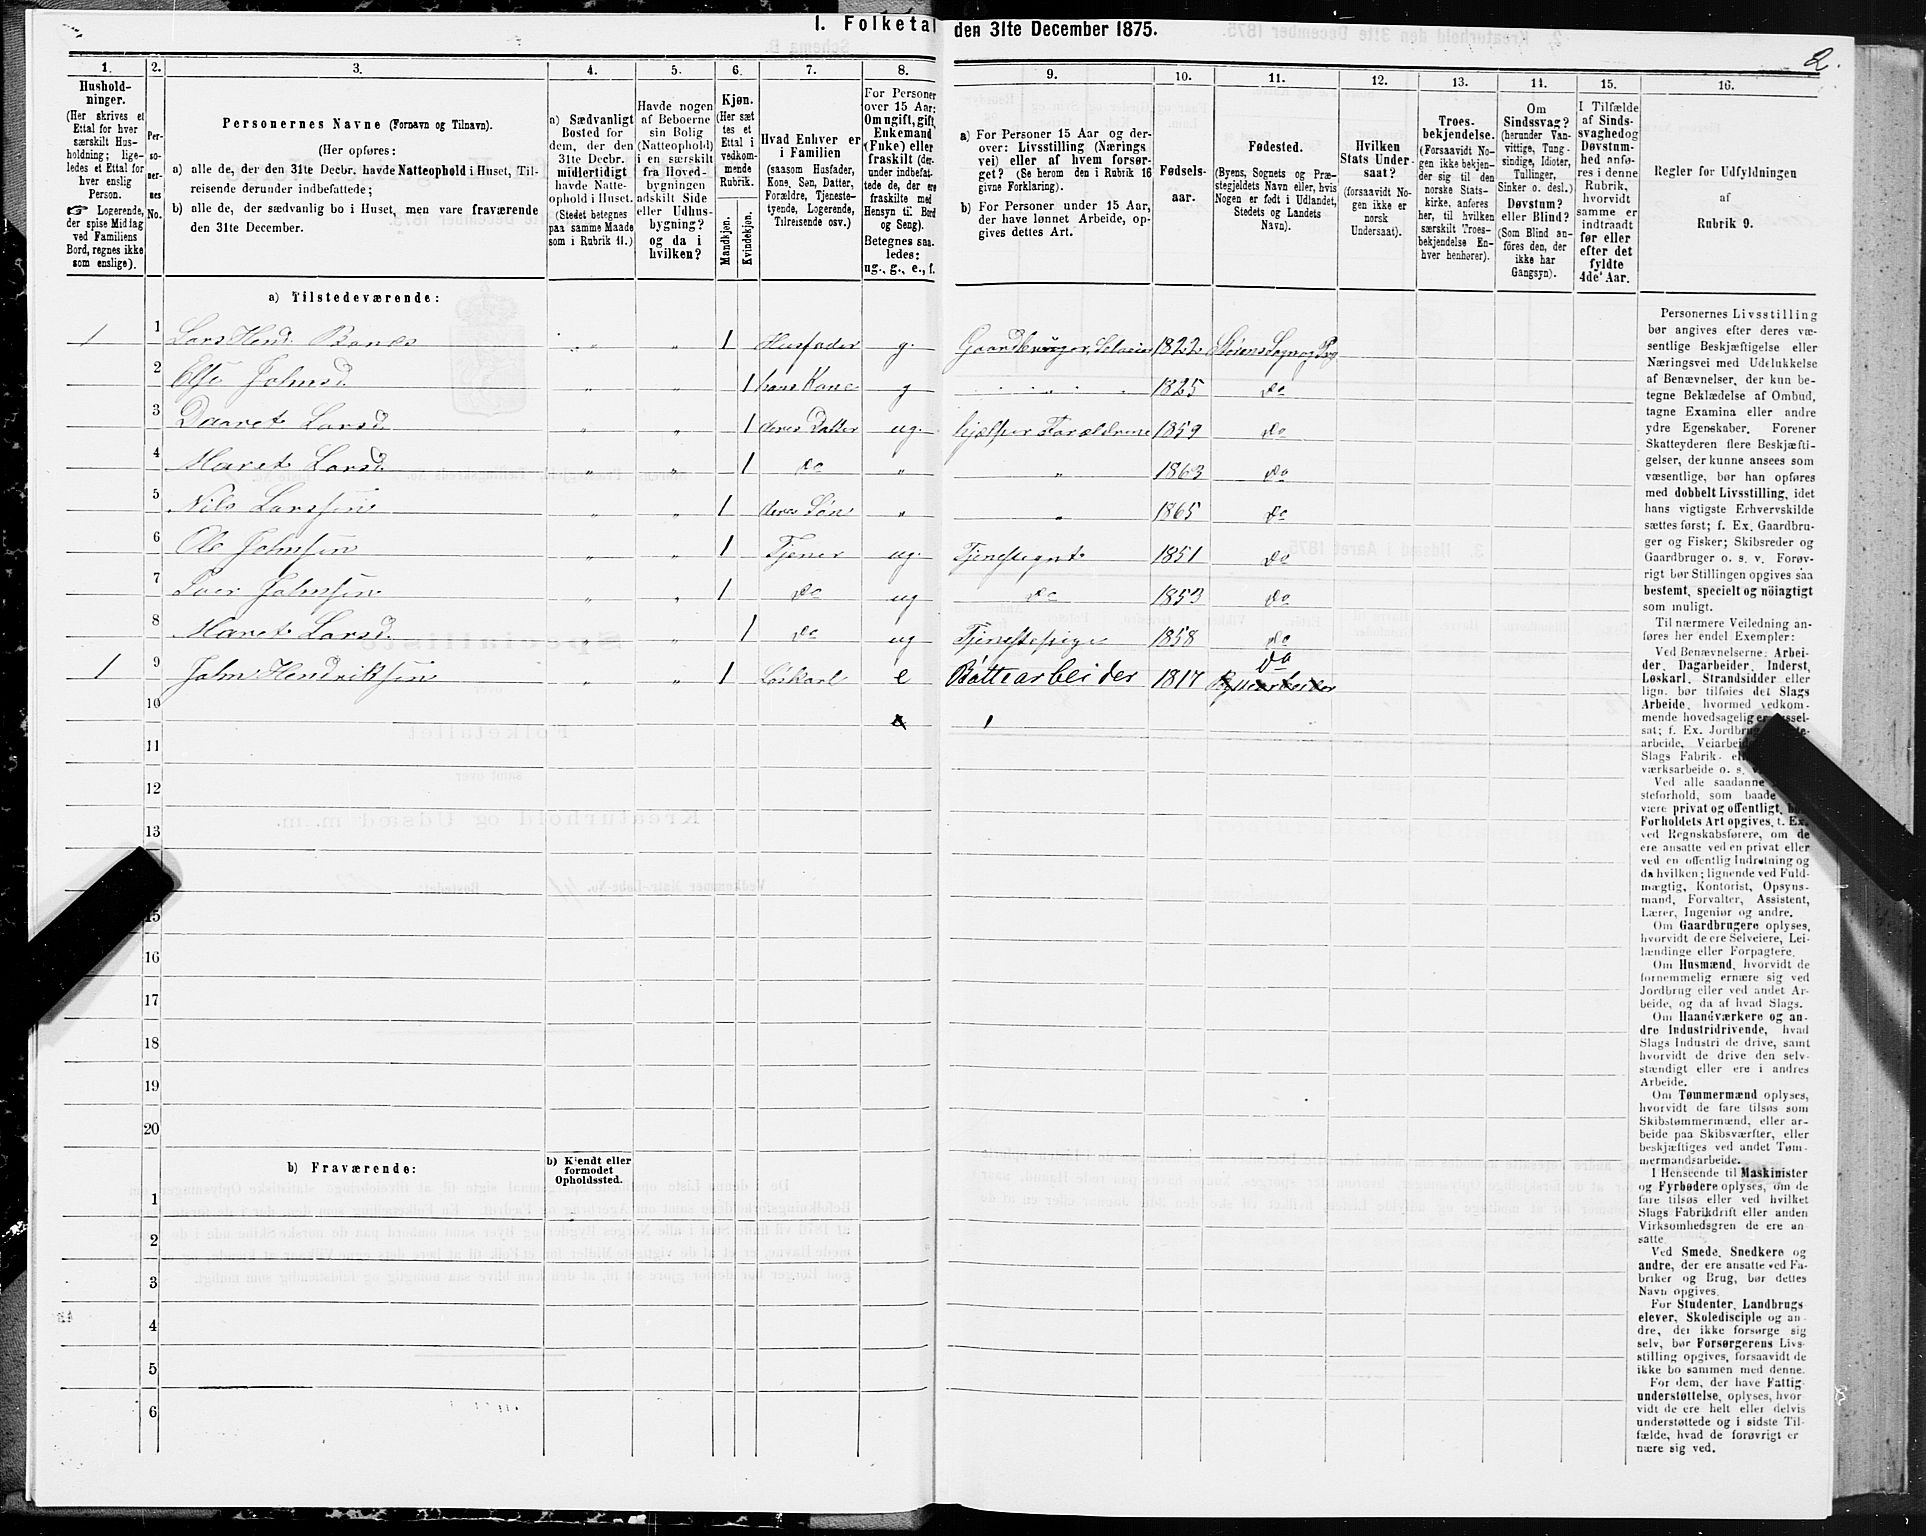 1. Folketal den 31te December 1875.
2.
1.
Hushold-
ninger.
(Her skrives et
Ettal for hver
særskilt Hus-
holdning; lige-
ledes et Ettal for
hver enslig
Person.
☞ Logerende,
der spise Middag
ved Familiens
Bord, regnes ikke
som enslige).
2.
Per-
so-
ner-
nes
No.
3.
Personernes Navne (Fornavn og Tilnavn).
(Her opføres:
a) alle de, der den 31te Decbr. havde Natteophold i Huset, Til-
reisende derunder indbefattede;
b) alle de, der sædvanlig bo i Huset, men vare fraværende
den 31te December.
4.
a) Sædvanligt
Bosted for
dem, der den
31te Decbr.
midlertidigt
havde Natte-
ophold i Huset.
(Stedet betegnes
paa samme Maade
som i Rubrik 11.)
5.
Havde nogen
af Beboerne
sin Bolig
(Natteophold)
i en særskilt
fra Hoved-
bygningen
adskilt Side
eller Udhus-
bygning?
og da i
hvilken?
6.
Kjøn.
(Her sæt-
tes et
Ettal i
vedkom-
mende
Rubrik.
Mandkjøn.
Kvindekjøn.
7.
Hvad Enhver er
i Familien
(saasom Husfader,
Kone, Søn, Datter,
Forældre, Tjeneste-
tyende, Logerende,
Tilreisende osv.)
8.
For Personer
over 15 Aar:
Om ugift, gift,
Enkemand
(Enke) eller
fraskilt (der-
under indbefat-
tede de, der ere
fraskilte med
Hensyn til Bord
og Seng).
Betegnes saa-
ledes:
ug., g., e., f.
9.
a) For Personer 15 Aar og der-
over: Livsstilling (Nærings-
vei) eller af hvem forsør-
get? (Se herom den i Rubrik 16
givne Forklaring).
b) For Personer under 15 Aar,
der have lønnet Arbeide, op-
gives dettes Art.
10.
Fødsels-
aar.
11.
Fødested.
(Byens, Sognets og Præ-
stegjeldets Navn eller, hvis
Nogen er født i Udlandet,
Stedets og Landets
Navn).
12.
Hvilken
Stats Under-
saat?
(forsaavidt No-
gen ikke er
norsk
Undersaat).
13.
Troes-
bekjendelse.
(Forsaavidt No-
gen ikke bekjen-
der sig til den
norske Stats-
kirke, anføres
her, til hvilken
særskilt Troes-
bekjendelse En-
hver henhører).
14.
Om
Sindssvag?
(herunder Van-
vittige, Tung-
sindige, Idioter,
Tullinger,
Sinker o. desl.)
Døvstum?
eller Blind?
(Som Blind an-
føres den, der
ikke har
Gangsyn).
15.
I Tilfælde
af Sinds-
svaghed og
Døvstum-
hed anfø-
res i denne
Rubrik,
hvorvidt
samme er
indtraadt
før eller
efter det
fyldte
4de Aar.
16.
Regler for Udfyldningen
af
Rubrik 9.
a) Tilstedeværende:
1 1 Lars Hend. Bones " " 1 Husfader g. Gaardbruger, Selveier 1822 Størens Sogn og Prg
2 Else Johnsd " " 1 hans Kone g " " " 1825 do
3 Daaret Larsd " " 1 deres Datter ug. hjælper Forældrene 1859 do
4 Maret Larsd " " 1 do " " 1863 do
5 Nils Larssen " " 1 deres Søn " " 1865 do
6 Ole Johnsen " " 1 Tjener ug. Tjenestegut 1851 do
7 Iver Johnsen " " 1 do ug do 1853 do
8 Maret Larsd " " 1 do ug Tjenestepige 1858 do
1 9 John Hendriksen " " 1 Løskarl e Bøttearbeider 1817 do
10
11
12
13
15
16
17
18
19
20
b) Fraværende:
b) Kjendt eller
formodet
Opholdssted.
1
2
3
4
5
6
Personernes Livsstilling
bør angives efter deres væ-
sentlige Beskjæftigelse eller
Næringsvei med Udelukkelse
af Benævnelser, der kun be-
tegne Beklædelse af Ombud,
tagne Examina eller andre
ydre Egenskaber. Forener
Skatteyderen flere Beskjæfti-
gelser, der kunne ansees som
væsentlige, bør han opføres
med dobbelt Livsstilling, idet
hans vigtigste Erhvervskilde
sættes først; f. Ex. Gaardbru-
ger og Fisker; Skibsreder og
Gaardbruger o. s. v. Forøv-
rigt bør Stillingen opgives saa
bestemt, specielt og nöiagtigt
som muligt.
Til nærmere Veiledning an-
føres her endel Exempler:
Ved Benævnelserne: Arbei-
der, Dagarbeider, Inderst,
Løskarl, Strandsidder eller
lign. bør tilføies det Slags
Arbeide, hvormed vedkom-
mende hovedsagelig er syssel-
sat; f. Ex. Jordbrug
arbeide, Veiarbeide
Slags Fabrik-
værksarbeide o. s. v.
Ved alle saadanne
steforhold, som baade
være privat og offentligt,
Forholdets Art opgives, f. Ex.
ved Regnskabsførere, om de
ere ansatte ved en privat eller
ved en offentlig Indretning og
da hvilken; lignende ved Fuld-
mægtig, Kontorist, Opsyns-
mand, Forvalter, Assistent,
Lærer, Ingeniør og andre.
Om Gaardbrugere oplyses,
hvorvidt de ere Selveiere, Lei-
lændinge eller Forpagtere.
Om Husmænd, hvorvidt de
fornemmelig ernære sig ved
Jordbrug eller ved andet Ar-
beide, og da af hvad Slags.
Om Haandværkere og an-
dre Industridrivende, hvad
Slags Industri de drive, samt
hvorvidt de drive den selv-
stændigt eller ere i andres
Arbeide.
Om Tømmermænd oplyses,
hvorvidt de fare tilsøs som
Skibstømmermænd, eller ar-
beide paa Skibsværfter, eller
beskjæftiges ved andet Tøm-
mermandsarbeide.
I Henseende til Maskinister
og Fyrbødere oplyses, om de
fare tilsøs eller ved hvilket
Slags Fabrikdrift eller anden
Virksomhedsgren de ere an-
satte.
Ved Smede, Snedkere og
andre, der ere ansatte ved Fa-
briker og Brug, bør dettes
Navn opgives.
For Studenter, Landbrugs-
elever, Skoledisciple og an-
dre, der ikke forsørge sig
selv, bør Forsørgerens Livs-
stilling opgives, forsaavidt de
ikke bo sammen med denne.
For dem, der have Fattig-
understøttelse, oplyses, hvor-
vidt de ere helt eller delvis
understøttede og i sidste Til-
fælde, hvad de forøvrigt er-
nære sig ved.